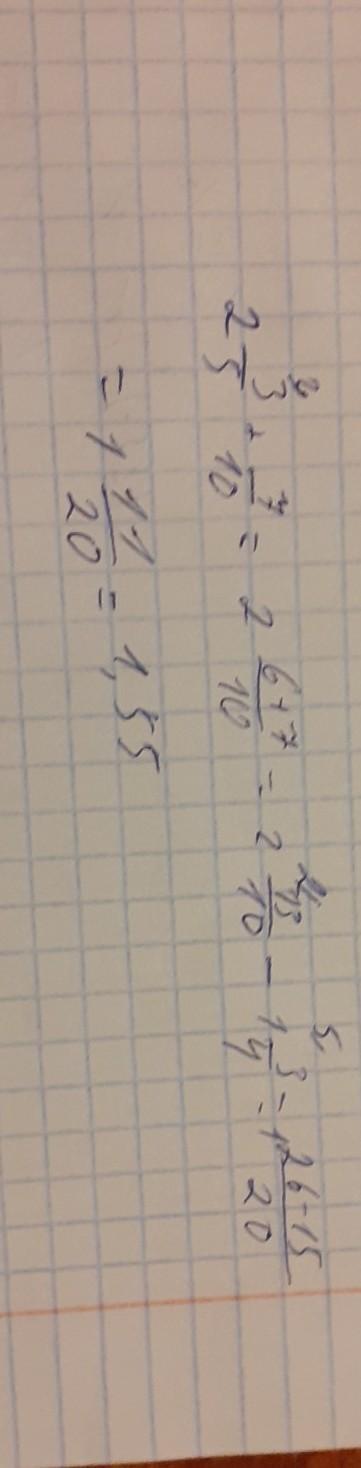 2 3/5² + 7/10 = 2 (6+7)/10 = 2 13/10² - 1 3/4⁵ = 1 (26-15)/20
= 1 11/20 = 1,55